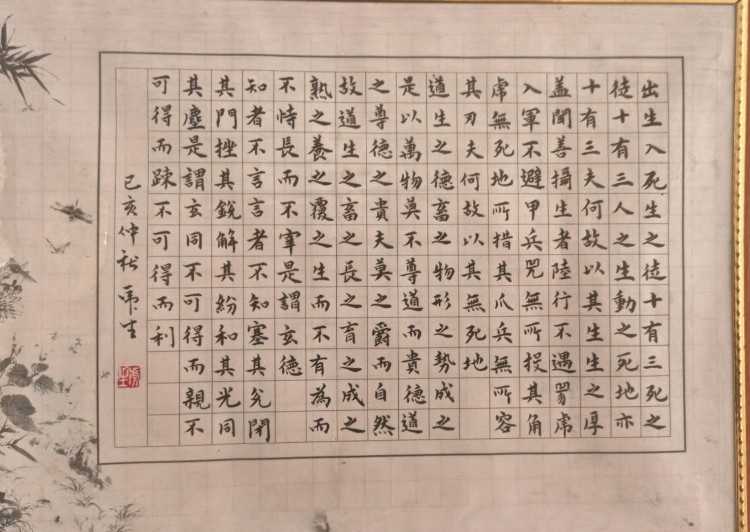 出生入死生之徒十有三死之
徒十有三人之生動之死地亦
十有三夫何故以其生生之厚
盖聞善攝生者陸行不遇兕虎
入軍不避甲兵兕無所投其角
虎無死地所措其爪兵無所容
其刃夫何故以其無死地
道生之德畜之物形之勢成之
是以萬物莫不尊道而貴德道
之尊德之貴夫莫之爵而自然
故道生之畜之長之育之成之
熟之養之覆之生而不有為而
不恃長而不宰是謂玄德
知者不言言者不知塞其兌閉
其門挫其銳解其紛和其光同
其塵是謂玄同不可得而親不
可得而疎不可得而利
己亥仲秋 虎生